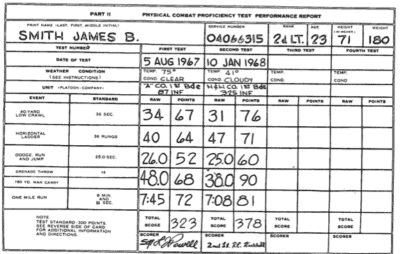 PART II PHYSICAL COMBAT PROFICIENCY TEST PERFORMANCE REPORT
PRINT NAME (LAST, FIRST, MIDDLE INITIAL) SERVICE NUMBER RANK AGE HEIGHT WEIGHT
SMITH JAMES B. 04065315 2d LT. 23 71 180
TEST NUMBER FIRST TEST SECOND TEST THIRD TEST FOURTH TEST
DATE OF TEST 5 AUG 1967 10 JAN 1968
WEATHER CONDITION TEMP. 75° TEMP. 41° TEMP. TEMP.
(SEE INSTRUCTIONS) COND. CLEAR COND. CLOUDY COND. COND.
UNIT (PLATOON-COMPANY) "A" CO. 1ST Bde H&H CO. 1ST Bde
87 INF 325 INF
EVENT STANDARD RAW POINTS RAW POINTS RAW POINTS RAW POINTS
40-YARD LOW CRAWL 36 SEC. 34 67 31 76
HORIZONTAL LADDER 36 RUNGS 40 64 47 71
DODGE, RUN AND JUMP 25.0 SEC. 26.0 52 25.0 60
GRENADE THROW
150 YD. MAN CARRY 48.0 68 38.0 90
ONE MILE RUN 8 MIN. 7:45 72 7:08 81
NOTE:
TEST STANDARD: 300 POINTS
SEE REVERSE SIDE OF CARD
FOR ADDITIONAL INFORMATION
AND DIRECTIONS.
TOTAL SCORE 323 TOTAL SCORE 378 TOTAL SCORE TOTAL SCORE
SCORER SCORER SCORER SCORER